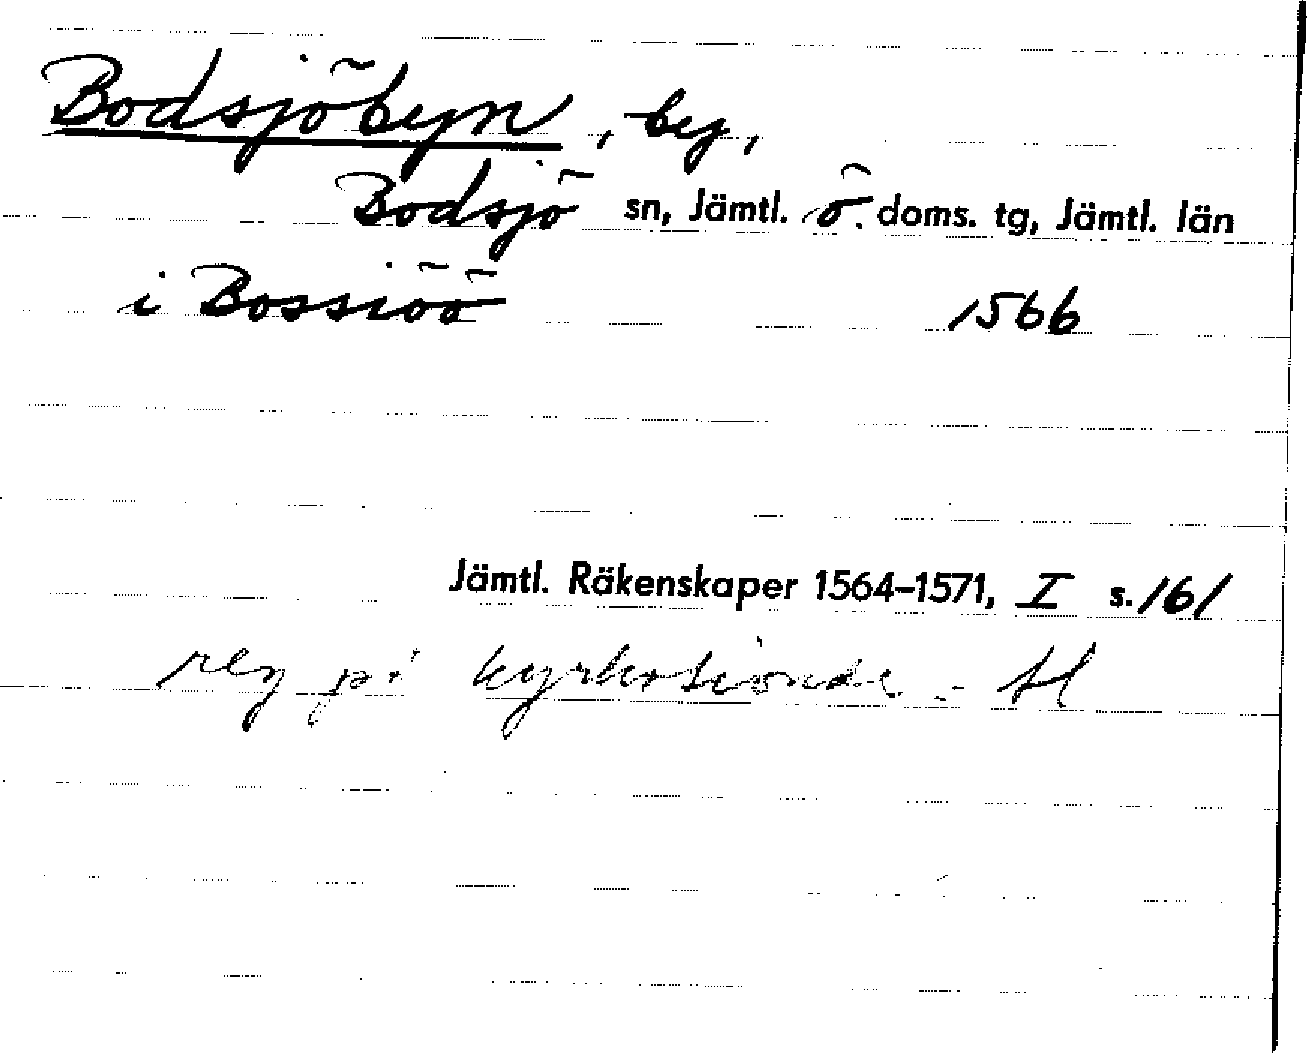 Bodsjöbyn, by,
Bodsjö sn, Jämtl. ö. doms. tg, Jämtl. län
i Bossiöö 1566
Jämtl. Räkenskaper 1564–1571, I s. 161
reg på kyrkotionde -